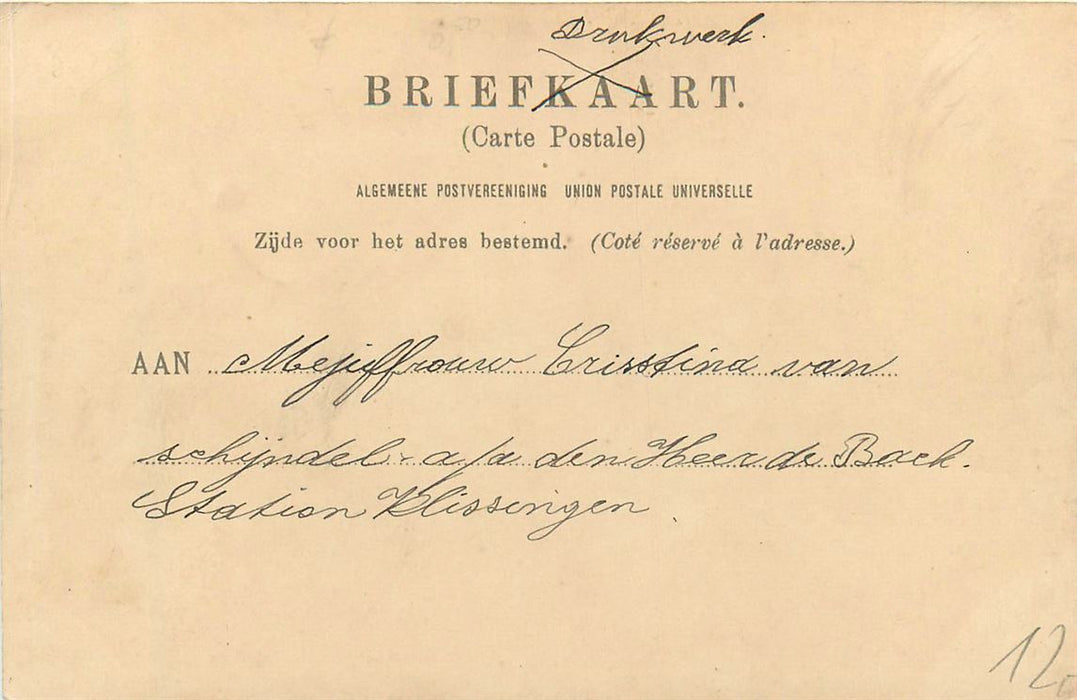 Drukwerk.
BRIEFKAART.
(Carte Postale)
ALGEMEENE POSTVEREENIGING UNION POSTALE UNIVERSELLE
Zijde voor het adres bestemd. (Coté réservé à l'adresse.)
AAN Mejuffrouw Crisstina van
schijndel - a/a den Heer de Back.
Station Vlissingen
12